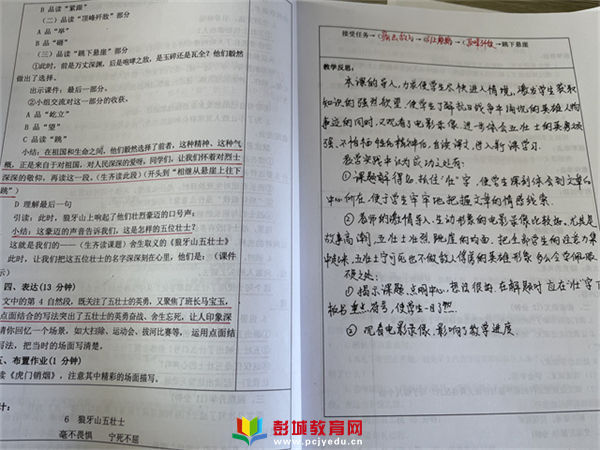 B 品读“紧跟”
(二)品读“顶峰歼敌”部分
A 品“举”
B 品“砸”
(三)品读“跳下悬崖”部分
①此时，前是万丈深渊，后是咆哮之敌，是玉碎还是瓦全？他们毅然
做出了选择。
出示课件：最后一部分。
②小组交流对这一部分的收获。
A 品“屹立”
B 品“望”
C 品读“跳”
小结：在祖国和生命之间，他们毅然选择了前者，这种精神、这种气
概，正是来自于对祖国，对人民深深的爱呀。同学们，让我们怀着对烈士
深深的敬仰，再读这一段。（生齐读此段）（开头到“相继从悬崖上往下
跳”）
D 理解最后一句
引读：此时，狼牙山上响起了他们壮烈豪迈的口号声：
小结：这豪迈的声音告诉我们，这是怎样的五位壮士？
这就是我们的——（生齐读课题）舍生取义的《狼牙山五壮士》
此时，让我们把这五位壮士的名字深深刻在心里，他们是：（课件
示）
四、表达(13 分钟)
文中的第 4 自然段，既关注了五壮士的英勇，又聚焦了班长马宝玉，
点面结合的写法突出了五壮士的英勇奋战、舍生忘死，让人印象深
请你回忆一个场景，如大扫除、运动会、拔河比赛等，运用点面结
写法，把当时的场面写清楚。
五、布置作业(1 分钟)
读《虎门销烟》，注意其中精彩的场面描写。
计：
6 狼牙山五壮士
毫不畏惧 宁死不屈
接受任务→痛击敌人→引上绝路→顶峰歼敌→跳下悬崖
教学反思：
本课的导入，力求使学生尽快进入情境，激发学生获取
知识的强烈欲望，使学生了解抗日战争中涌现的英雄人物
事迹的同时，又观看了电影录像，进一步体会五壮士的英勇顽
强、不怕牺牲的精神后，自读课文，进入新课学习。
教学实践中认为成功之处有：
①课题解得好，抓住“壮”字，使学生深刻体会到文章的
中心何在，便于学生牢牢地把握文章的情感线索。
②教师的激情导入，生动形象的电影录像比较好。尤其是
故事高潮，五壮士壮烈跳崖的场面，把全部学生的注意力集
中起来，五壮士宁可死也不做敌人俘虏的英雄形象
硬之处
①揭示课题，点明中心，想法很好，在解题时应在“壮”字下
板书重点符号，使学生一目了然。
②观看电影录像，影响了教学进度
彭城教育网
www.pcjyedu.cn